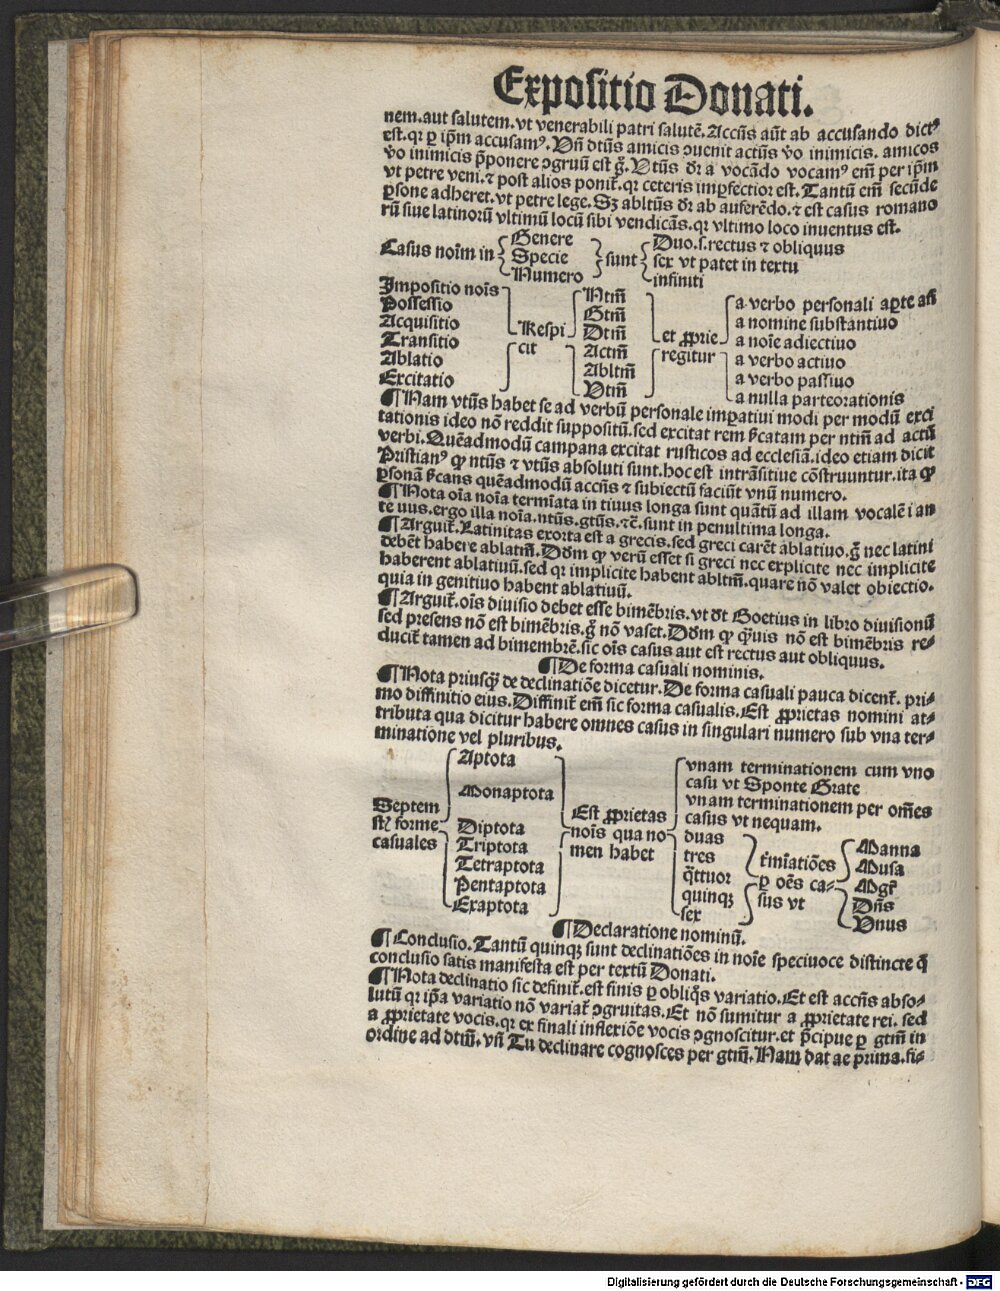 Expositio Donati.
nem.aut salutem.vt venerabili patri salutē. Accūs aūt ab accusando dictꝰ
est.qr ꝑ ip̄m accusamꝰ. Vn̄ dt̄us amicis ꝯuenit actūs ꝟo inimicis. amicos
ꝟo inimicis p̄ponere ꝯgruū est g̅. Vtūs dr̄ a vocādo vocamꝰ em̄ per ip̄m
vt petre veni.⁊ post alios ponit̄.qr ceteris imꝑfectior est. Tantū em̄ secūde
ꝑsone adheret.vt petre lege. Sꝫ abltūs dr̄ ab auferēdo.⁊ est casus romano
rū siue latinorū vltimū locū sibi vendicās.qr vltimo loco inuentus est.
Casus noīm in
Genere
Specie
Numero
sunt
Duo.s.rectus ⁊ obliquus
sex vt patet in textu
infiniti
Impositio nois̄
Possessio
Acquisitio
Transitio
Ablatio
Excitatio
Respi
cit
Ntm̄
Gtm̄
Dtm̄
Actm̄
Abltm̄
Vtm̄
et ꝓprie
regitur
a verbo personali aꝑte an̄
a nomine substantiuo
a noīe adiectiuo
a verbo actiuo
a verbo passiuo
a nulla parteorationis
¶ Nam vtūs habet se ad verbū personale imꝑatiui modi per modū exci
tationis ideo nō reddit suppositū.sed excitat rem s̄catam per ntm̄ ad actū
verbi. Quēadmodū campana excitat rusticos ad ecclesiā.ideo etiam dicit
Pristianꝰ ꝙ ntūs ⁊ vtūs absoluti sunt.hoc est intrāsitiue cōstruuntur.ita ꝙ
ꝑsonā s̄cans quēadmodū accūs ⁊ subiectū faciūt vnū numero.
¶ Nota oīa noīa termīata in tiuus longa sunt quātū ad illam vocalē i an
te uus.ergo illa noīa.ntūs.gtūs.⁊c̄.sunt in penultima longa.
¶ Arguit̄. Latinitas exorta est a grecis.sed greci carēt ablatiuo.g̅ nec latini
debēt habere ablatm̄. Dōm ꝙ verū esset si greci nec explicite nec implicite
haberent ablatiuū.sed qr implicite habent abltm̄.quare nō valet obiectio.
quia in genitiuo habent ablatiuū.
¶ Arguit̄.oīs diuisio debet esse bimēbris.vt dt̄ Boetius in libro diuisionū
sed presens nō est bimēbris.g̅ nō valet. Dōm ꝙ q̄uis nō est bimēbris re⸗
ducit̄ tamen ad bimembrē.sic oīs casus aut est rectus aut obliquus.
¶ De forma casuali nominis.
¶ Nota priusq̄ de declinatiōe dicetur. De forma casuali pauca dicent̄. pri⸗
mo diffinitio eius. Diffinit̄ em̄ sic forma casualis. Est ꝓprietas nomini at⸗
tributa qua dicitur habere omnes casus in singulari numero sub vna ter⸗
minatione vel pluribus.
Septem
st̄ forme
casuales
Aptota
Monaptota
Diptota
Triptota
Tetraptota
Pentaptota
Exaptota
Est ꝓprietas
noīs qua no⸗
men habet
vnam terminationem cum vno
casu vt Sponte Grate
vnam terminationem per om̄es
casus vt nequam.
duas
tres
q̄ttuor
quinqꝫ
sex
t̄mīatiōes
ꝑ oēs ca⸗
sus vt
Manna
Musa
Mgr̄
Dn̄s
Vnus
¶ Declaratione nominū.
¶ Conclusio. Tantū quinqꝫ sunt declinatiōes in noīe speciuoce distincte q̄
conclusio satis manifesta est per textū Donati.
¶ Nota declinatio sic definit̄.est finis ꝑ obliq̄s variatio. Et est accn̄s abso⸗
lutū qr ip̄a variatio nō variat̄ ꝯgruitas. Et nō sumitur a ꝓprietate rei. sed
a ꝓprietate vocis.qr ex finali inflexiōe vocis ꝯgnoscitur.et p̄cipue ꝑ gtm̄ in
ordine ad dtm̄.vn̄ Tu declinare cognosces per gtm̄. Nam dat ae prima.si⸗
Digitalisierung gefördert durch die Deutsche Forschungsgemeinschaft - DFG